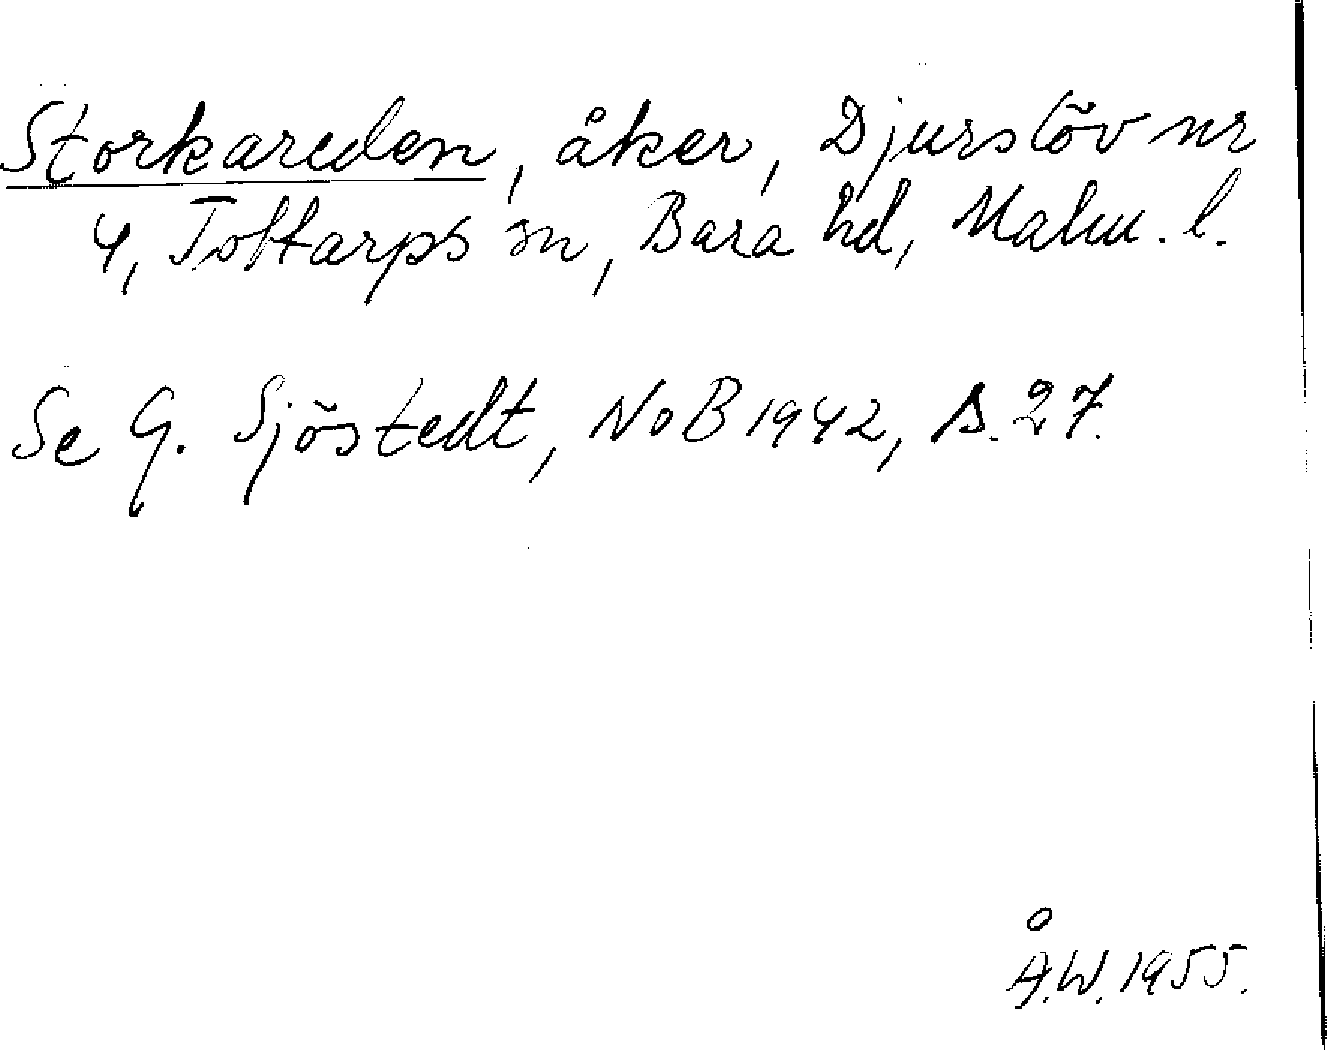 Storkareden, åker, Djurslöv nr
4, Tottarps sn, Bara hd, Malm. l.
Se G. Sjöstedt, NoB 1942, s. 27.
Å.W. 1955.